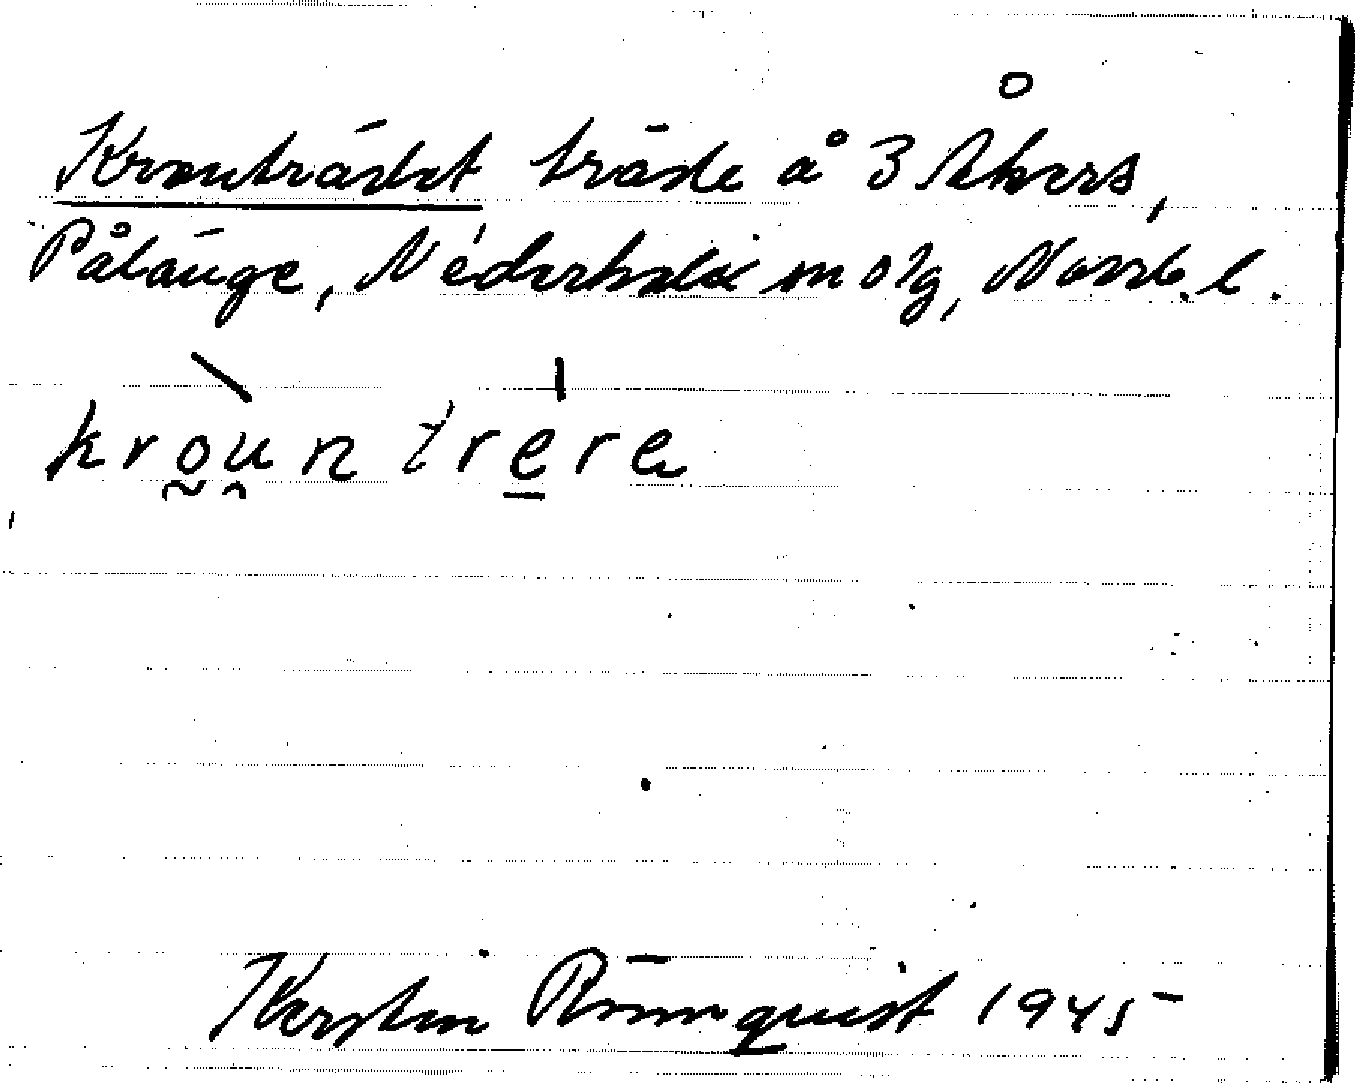 O
Kronträdet träde å 3 Åkers,
Pålänge, Nederkalix snolg, Norrb. l.
kroun trere
Kerstin Rönnquist 1945